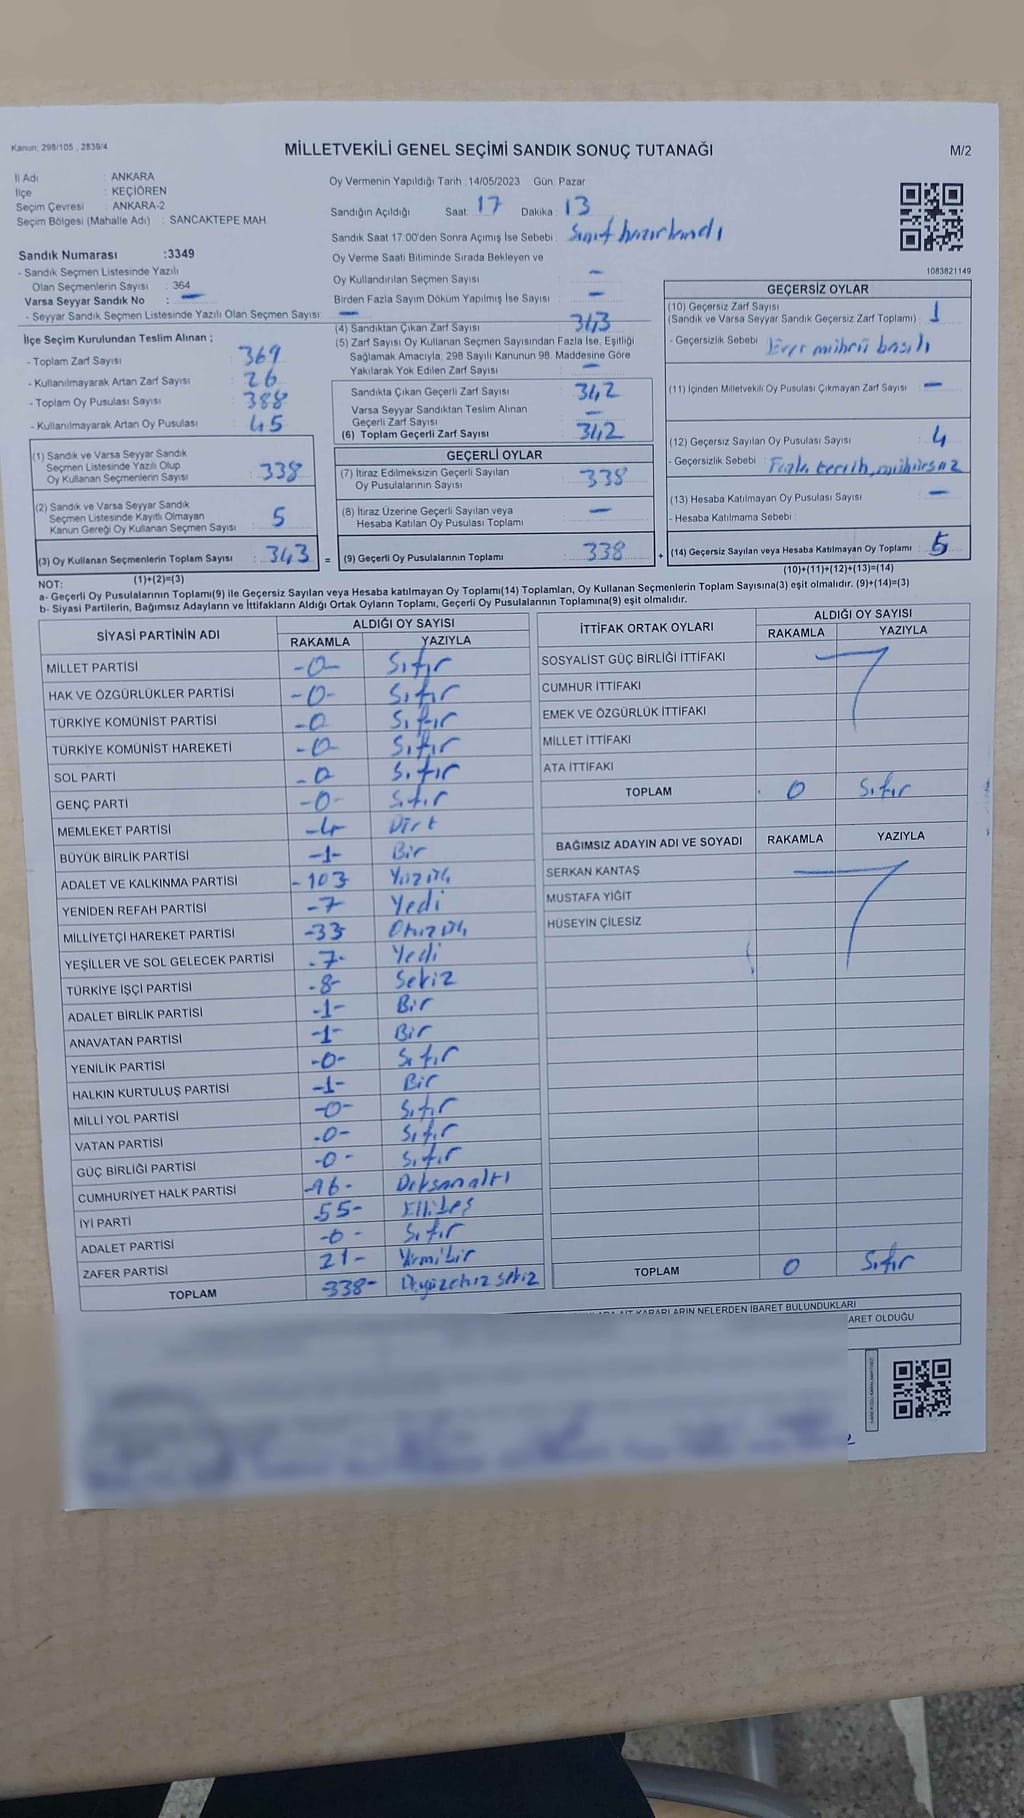 Kanun: 298/105 , 2839/4
MİLLETVEKİLİ GENEL SEÇİMİ SANDIK SONUÇ TUTANAĞI
M/2
İl Adı : ANKARA
İlçe : KEÇİÖREN
Seçim Çevresi : ANKARA-2
Seçim Bölgesi (Mahalle Adı) : SANCAKTEPE MAH
Sandık Numarası :3349
- Sandık Seçmen Listesinde Yazılı
Olan Seçmenlerin Sayısı : 364
Varsa Seyyar Sandık No : —
- Seyyar Sandık Seçmen Listesinde Yazılı Olan Seçmen Sayısı: —
Oy Vermenin Yapıldığı Tarih :14/05/2023 Gün: Pazar
Sandığın Açıldığı Saat 17 Dakika : 13
Sandık Saat 17:00'den Sonra Açımış İse Sebebi : Sınıf hazırlandı
Oy Verme Saati Bitiminde Sırada Bekleyen ve
Oy Kullandırılan Seçmen Sayısı : —
Birden Fazla Sayım Döküm Yapılmış İse Sayısı : —
1083821149
İlçe Seçim Kurulundan Teslim Alınan ;
- Toplam Zarf Sayısı : 369
- Kullanılmayarak Artan Zarf Sayısı : 26
- Toplam Oy Pusulası Sayısı : 388
- Kullanılmayarak Artan Oy Pusulası : 45
(1) Sandık ve Varsa Seyyar Sandık
Seçmen Listesinde Yazılı Olup
Oy Kullanan Seçmenlerin Sayısı : 338
(2) Sandık ve Varsa Seyyar Sandık
Seçmen Listesinde Kayıtlı Olmayan
Kanun Gereği Oy Kullanan Seçmen Sayısı : 5
(3) Oy Kullanan Seçmenlerin Toplam Sayısı : 343 =
(4) Sandıktan Çıkan Zarf Sayısı : 343
(5) Zarf Sayısı Oy Kullanan Seçmen Sayısından Fazla İse, Eşitliği
Sağlamak Amacıyla, 298 Sayılı Kanunun 98. Maddesine Göre
Yakılarak Yok Edilen Zarf Sayısı : —
Sandıkta Çıkan Geçerli Zarf Sayısı : 342
Varsa Seyyar Sandıktan Teslim Alınan
Geçerli Zarf Sayısı : —
(6) Toplam Geçerli Zarf Sayısı : 342
GEÇERLİ OYLAR
(7) İtiraz Edilmeksizin Geçerli Sayılan
Oy Pusulalarının Sayısı : 338
(8) İtiraz Üzerine Geçerli Sayılan veya
Hesaba Katılan Oy Pusulası Toplamı : —
(9) Geçerli Oy Pusulalarının Toplamı : 338 +
GEÇERSİZ OYLAR
(10) Geçersiz Zarf Sayısı
(Sandık ve Varsa Seyyar Sandık Geçersiz Zarf Toplamı) : 1
- Geçersizlik Sebebi : mührü basılı
(11) İçinden Milletvekili Oy Pusulası Çıkmayan Zarf Sayısı : —
(12) Geçersiz Sayılan Oy Pusulası Sayısı : 4
- Geçersizlik Sebebi : Fazla tercih, mühürsüz
(13) Hesaba Katılmayan Oy Pusulası Sayısı : —
- Hesaba Katılmama Sebebi :
(14) Geçersiz Sayılan veya Hesaba Katılmayan Oy Toplamı : 5
NOT: (1)+(2)=(3)
(10)+(11)+(12)+(13)=(14)
a- Geçerli Oy Pusulalarının Toplamı(9) ile Geçersiz Sayılan veya Hesaba katılmayan Oy Toplamı(14) Toplamları, Oy Kullanan Seçmenlerin Toplam Sayısına(3) eşit olmalıdır. (9)+(14)=(3)
b- Siyasi Partilerin, Bağımsız Adayların ve İttifakların Aldığı Ortak Oyların Toplamı, Geçerli Oy Pusulalarının Toplamına(9) eşit olmalıdır.
SİYASİ PARTİNİN ADI ALDIĞI OY SAYISI
RAKAMLA YAZIYLA
MİLLET PARTİSİ -0- Sıfır
HAK VE ÖZGÜRLÜKLER PARTİSİ -0- Sıfır
TÜRKİYE KOMÜNİST PARTİSİ -0 Sıfır
TÜRKİYE KOMÜNİST HAREKETİ -0- Sıfır
SOL PARTİ -0 Sıfır
GENÇ PARTİ -0- Sıfır
MEMLEKET PARTİSİ -4- Dört
BÜYÜK BİRLİK PARTİSİ -1- Bir
ADALET VE KALKINMA PARTİSİ -103 Yüzüç
YENİDEN REFAH PARTİSİ -7 Yedi
MİLLİYETÇİ HAREKET PARTİSİ -33 Otuzüç
YEŞİLLER VE SOL GELECEK PARTİSİ -7- Yedi
TÜRKİYE İŞÇİ PARTİSİ -8- Sekiz
ADALET BİRLİK PARTİSİ -1- Bir
ANAVATAN PARTİSİ -1- Bir
YENİLİK PARTİSİ -0- Sıfır
HALKIN KURTULUŞ PARTİSİ -1- Bir
MİLLİ YOL PARTİSİ -0- Sıfır
VATAN PARTİSİ -0- Sıfır
GÜÇ BİRLİĞİ PARTİSİ -0- Sıfır
CUMHURİYET HALK PARTİSİ -96- Doksanaltı
İYİ PARTİ 55- Ellibeş
ADALET PARTİSİ -0- Sıfır
ZAFER PARTİSİ 21- Yirmibir
TOPLAM -338- Üçyüzotuz sekiz
İTTİFAK ORTAK OYLARI ALDIĞI OY SAYISI
RAKAMLA YAZIYLA
SOSYALİST GÜÇ BİRLİĞİ İTTİFAKI
CUMHUR İTTİFAKI
EMEK VE ÖZGÜRLÜK İTTİFAKI
MİLLET İTTİFAKI
ATA İTTİFAKI
TOPLAM 0 Sıfır
BAĞIMSIZ ADAYIN ADI VE SOYADI RAKAMLA YAZIYLA
SERKAN KANTAŞ
MUSTAFA YİĞİT
HÜSEYİN ÇİLESİZ
TOPLAM 0 Sıfır
KARARLARIN NELERDEN İBARET BULUNDUKLARI
ARET OLDUĞU